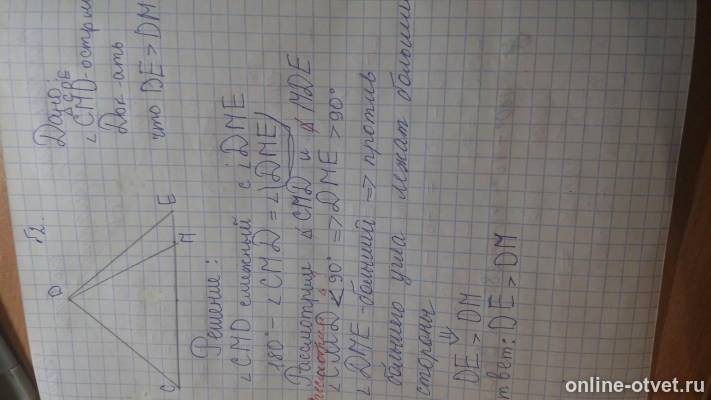 №2.
D
C
M
E
Дано:
△CDE
∠CMD - острый
Док-ать
что DE > DM
Решение:
∠CMD смежный с ∠DME
180° - ∠CMD = ∠DME
Рассмотрим △CMD и △MDE
∠CMD < 90° => DME > 90°
∠DME - больший => против
большего угла лежат большие
стороны
⇓
DE > DM
ответ: DE > DM
online-otvet.ru